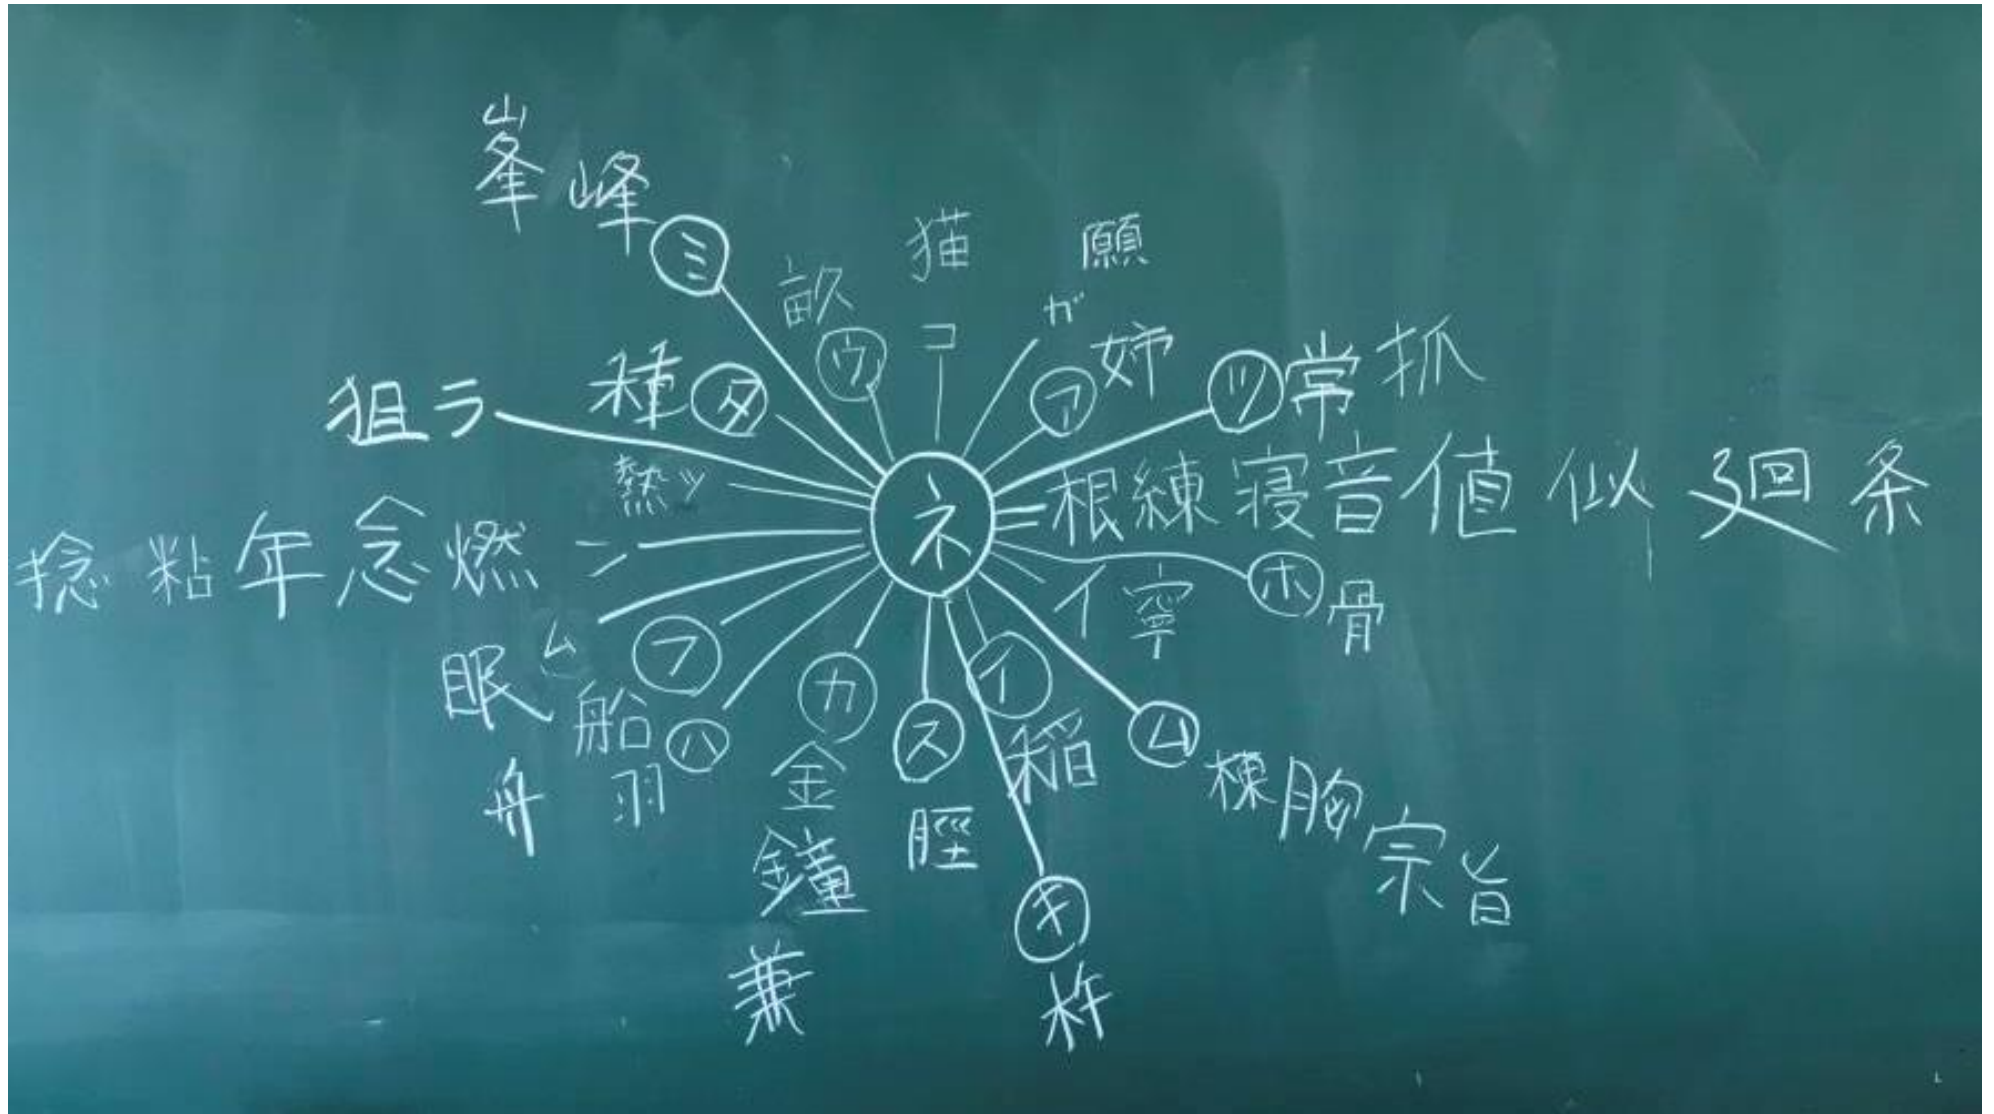 峯 峰 ミ
畝 ウ
猫 コ
願 ガ
姉 ア
ツ 常 抓
種 タ
狙 ラ
熱 ッ
ネ
根 練 寝 音 値 似 廻 条
捻 粘 年 念 燃 ン
イ 寧
ホ 骨
眠 ム
船 フ
舟
羽 ハ
カ
金
鐘
兼
ス
脛
イ
稲
ム
棟 胸 宗 旨
キ
杵